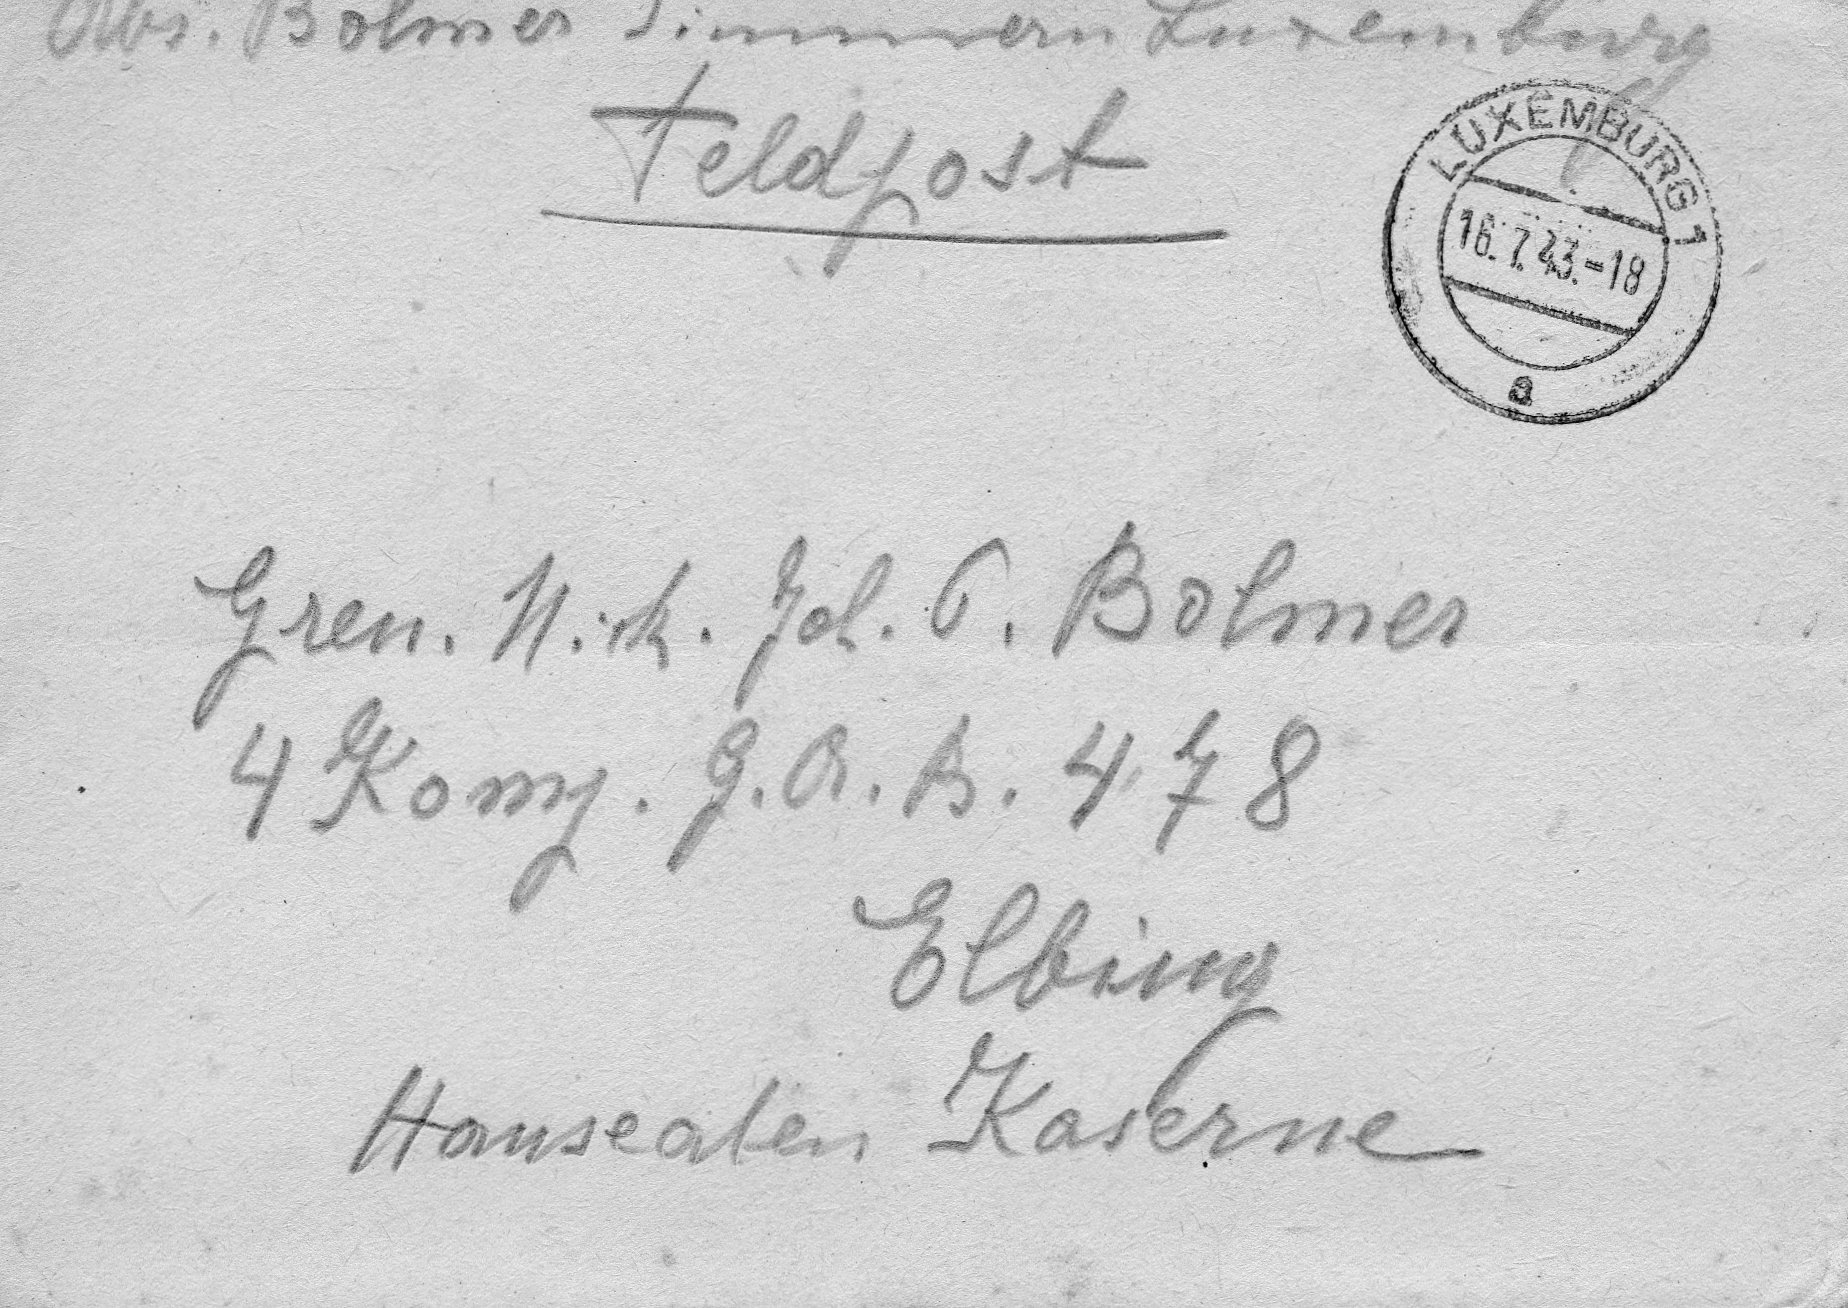 Abs. Bolmer Simmern Luxemburg
Feldpost
LUXEMBURG 1
16.7.43.-18
a
Gren. Nik. Joh. P. Bolmer
4 Komp. G.A.B. 478
Elbing
Hanseaten Kaserne